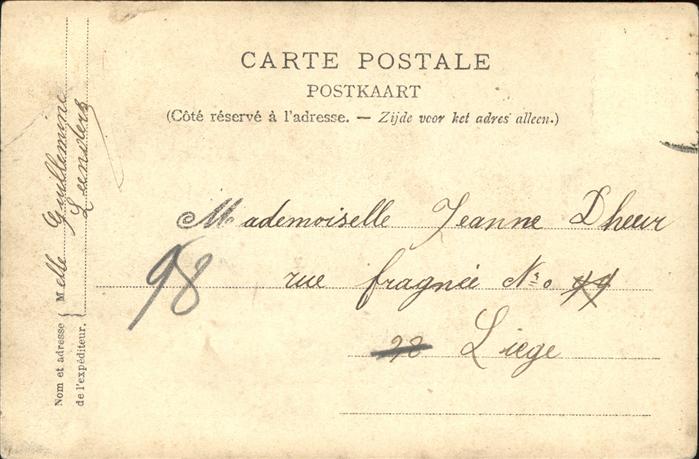 CARTE POSTALE
POSTKAART
(Côté réservé à l'adresse. — Zijde voor het adres alleen.)
Mademoiselle Jeanne Dheur
rue fragnée No 44
98
98 Liège
Nom et adresse de l'expéditeur. { Melle Guillemine
Leenders